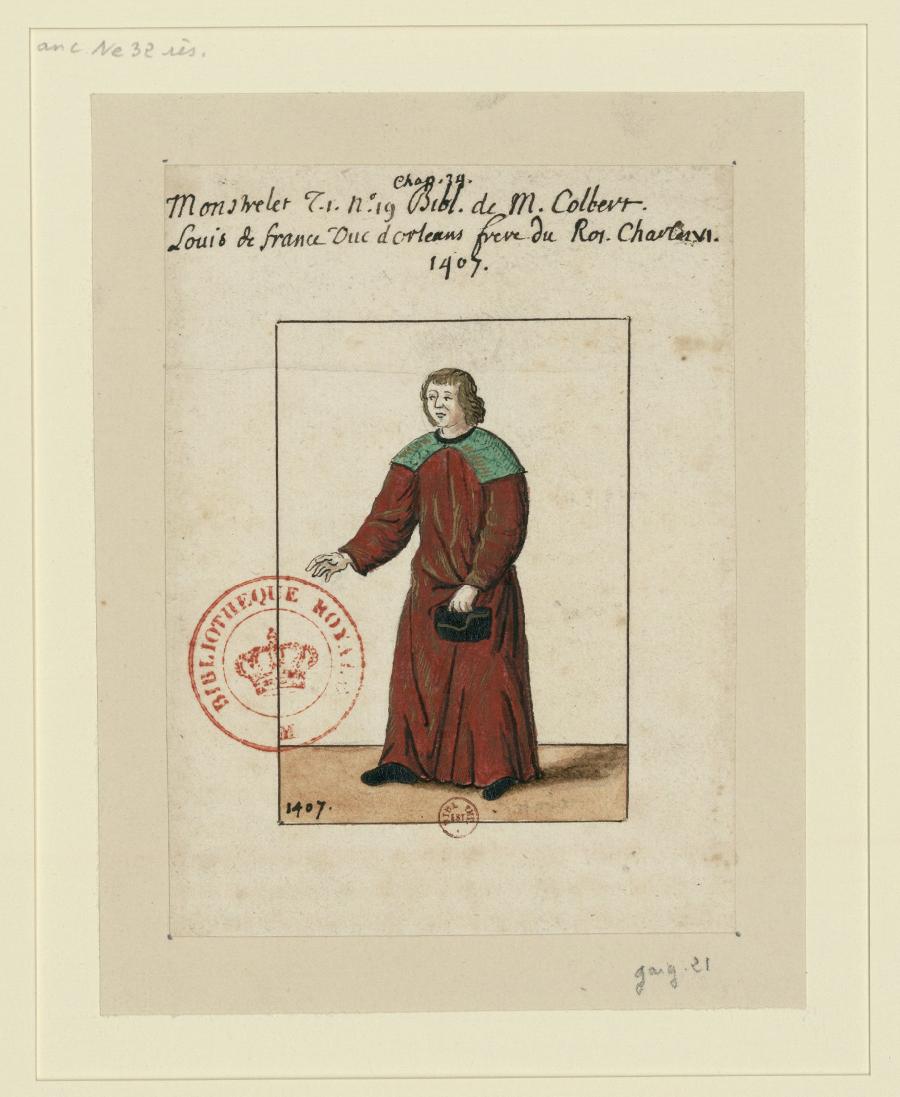 anc. Ne 32 rés.
Chap. 34.
Monstrelet T.1. N°.19 Bibl. de M. Colbert.
Louis de france Duc dorleans frere du Roi. Charles VI.
1407.
BIBLIOTHEQUE ROYALE
1407.
EST.
gaig. 21